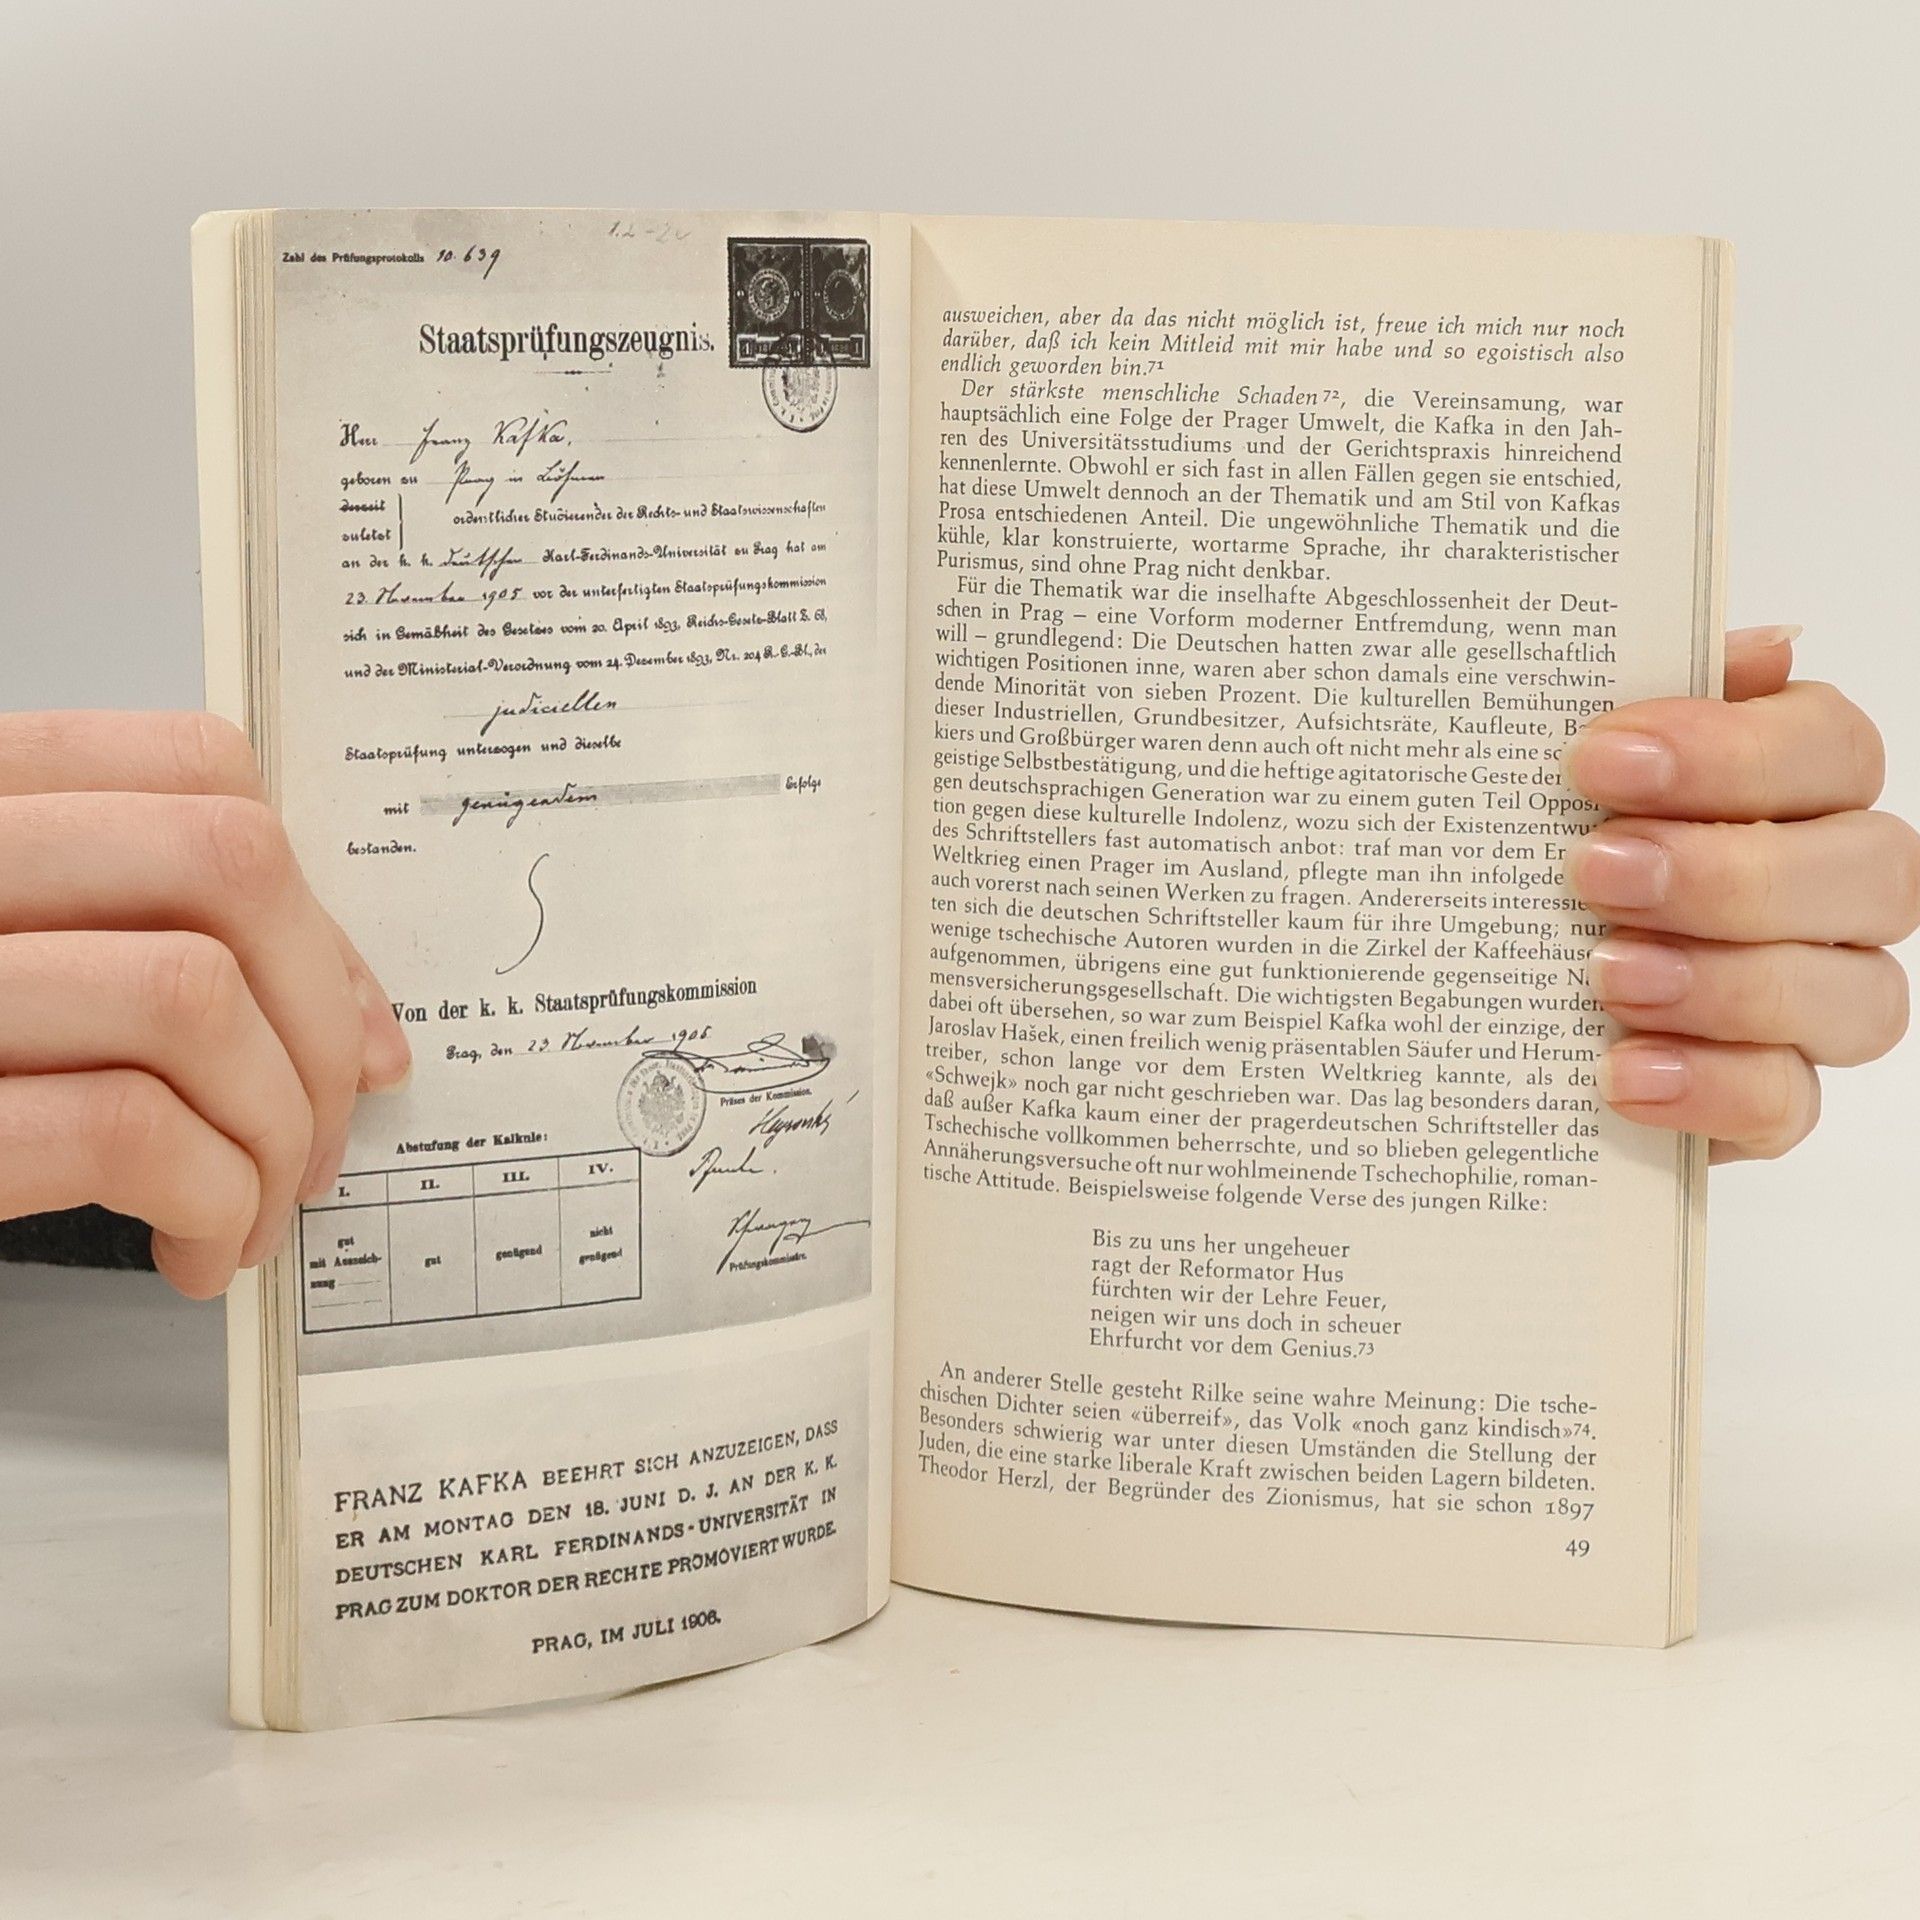 Zahl des Prüfungsprotokolls 10.639
Staatsprüfungszeugnis.
Herr Franz Kafka,
geboren zu Prag in Böhmen
derzeit
zuletzt
ordentlicher Studierender der Rechts- und Staatswissenschaften
an der k. k. deutschen Karl-Ferdinands-Universität zu Prag hat am
23. November 1905 vor der unterfertigten Staatsprüfungskommission
sich in Gemäßheit des Gesetzes vom 20. April 1893, Reichs-Gesetz-Blatt Z. 68,
und der Ministerial-Verordnung vom 24. Dezember 1893, Nr. 204 R.-G.-Bl., der
judiciellen
Staatsprüfung unterzogen und dieselbe
mit genügendem Erfolge
bestanden.
Von der k. k. Staatsprüfungskommission
Prag, den 23 November 1905
Präses der Kommission.
Prüfungskommissäre.
Abstufung der Kalkule:
I. II. III. IV.
gut
mit Auszeich-
nung
gut
genügend
nicht
genügend
FRANZ KAFKA BEEHRT SICH ANZUZEIGEN, DASS
ER AM MONTAG DEN 18. JUNI D. J. AN DER K. K.
DEUTSCHEN KARL FERDINANDS-UNIVERSITÄT IN
PRAG ZUM DOKTOR DER RECHTE PROMOVIERT WURDE.
PRAG, IM JULI 1906.
ausweichen, aber da das nicht möglich ist, freue ich mich nur noch
darüber, daß ich kein Mitleid mit mir habe und so egoistisch also
endlich geworden bin.71
Der stärkste menschliche Schaden72, die Vereinsamung, war
hauptsächlich eine Folge der Prager Umwelt, die Kafka in den Jah-
ren des Universitätsstudiums und der Gerichtspraxis hinreichend
kennenlernte. Obwohl er sich fast in allen Fällen gegen sie entschied,
hat diese Umwelt dennoch an der Thematik und am Stil von Kafkas
Prosa entschiedenen Anteil. Die ungewöhnliche Thematik und die
kühle, klar konstruierte, wortarme Sprache, ihr charakteristischer
Purismus, sind ohne Prag nicht denkbar.
Für die Thematik war die inselhafte Abgeschlossenheit der Deut-
schen in Prag – eine Vorform moderner Entfremdung, wenn man
will – grundlegend: Die Deutschen hatten zwar alle gesellschaftlich
wichtigen Positionen inne, waren aber schon damals eine verschwin-
dende Minorität von sieben Prozent. Die kulturellen Bemühungen
dieser Industriellen, Grundbesitzer, Aufsichtsräte, Kaufleute,
kiers und Großbürger waren denn auch oft nicht mehr als eine
geistige Selbstbestätigung, und die heftige agitatorische Geste der
gen deutschsprachigen Generation war zu einem guten Teil Opposi-
tion gegen diese kulturelle Indolenz, wozu sich der Existenzentwurf
des Schriftstellers fast automatisch anbot: traf man vor dem
Weltkrieg einen Prager im Ausland, pflegte man ihn infolgede
auch vorerst nach seinen Werken zu fragen. Andererseits interessier-
ten sich die deutschen Schriftsteller kaum für ihre Umgebung; nur
wenige tschechische Autoren wurden in die Zirkel der Kaffeehäuser
aufgenommen, übrigens eine gut funktionierende gegenseitige
mensversicherungsgesellschaft. Die wichtigsten Begabungen wurden
dabei oft übersehen, so war zum Beispiel Kafka wohl der einzige, der
Jaroslav Hašek, einen freilich wenig präsentablen Säufer und Herum-
treiber, schon lange vor dem Ersten Weltkrieg kannte, als der
«Schwejk» noch gar nicht geschrieben war. Das lag besonders daran,
daß außer Kafka kaum einer der pragerdeutschen Schriftsteller das
Tschechische vollkommen beherrschte, und so blieben gelegentliche
Annäherungsversuche oft nur wohlmeinende Tschechophilie, roman-
tische Attitude. Beispielsweise folgende Verse des jungen Rilke:
Bis zu uns her ungeheuer
ragt der Reformator Hus
fürchten wir der Lehre Feuer,
neigen wir uns doch in scheuer
Ehrfurcht vor dem Genius.73
An anderer Stelle gesteht Rilke seine wahre Meinung: Die tsche-
chischen Dichter seien «überreif», das Volk «noch ganz kindisch»74.
Besonders schwierig war unter diesen Umständen die Stellung der
Juden, die eine starke liberale Kraft zwischen beiden Lagern bildeten.
Theodor Herzl, der Begründer des Zionismus, hat sie schon 1897
49